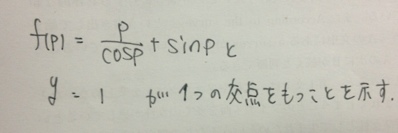 f(p) = p/cosp + sinp と
y = 1 が 1つの交点をもつことを示す.